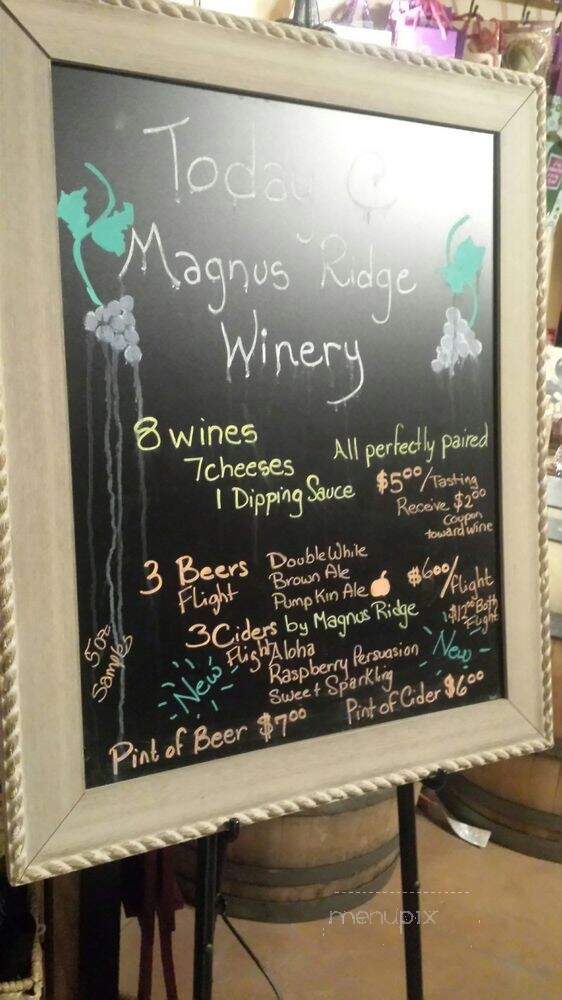 Today @
Magnus Ridge
Winery
8 wines
7 cheeses
1 Dipping Sauce
All perfectly paired
$5.00/Tasting
Receive $2.00
Coupon
toward wine
3 Beers
Flight
Double While
Brown Ale
Pumpkin Ale
$6.00/flight
3 Ciders by Magnus Ridge
Flight
Aloha
Raspberry Persuasion
Sweet Sparkling
Both
Flight
5 oz
Samples
New
New
Pint of Beer $7.00
Pint of Cider $6.00
menupix